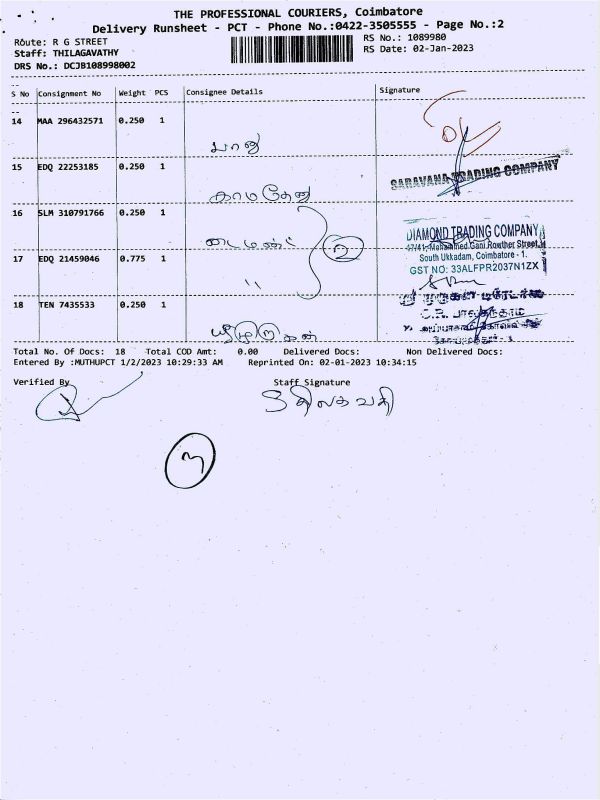 THE PROFESSIONAL COURIERS, Coimbatore
Delivery Runsheet - PCT - Phone No.:0422-3505555 - Page No.:2
Route: R G STREET
RS No.: 1089980
Staff: THILAGAVATHY
RS Date: 02-Jan-2023
DRS No.: DCJB108998002
S No Consignment No Weight PCS Consignee Details Signature
14 MAA 296432571 0.250 1
பானு
15 EDQ 22253185 0.250 1
SARAVANA TRADING COMPANY
காமதேனு
16 SLM 310791766 0.250 1
டைமண்ட் 2
DIAMOND TRADING COMPANY
South Ukkadam, Coimbatore - 1.
GST NO: 33ALFPR2037N1ZX
17 EDQ 21459046 0.775 1
"
18 TEN 7435533 0.250 1
Total No. Of Docs: 18 Total COD Amt: 0.00 Delivered Docs: Non Delivered Docs:
Entered By :MUTHUPCT 1/2/2023 10:29:33 AM Reprinted On: 02-01-2023 10:34:15
Verified By Staff Signature
திலகவதி